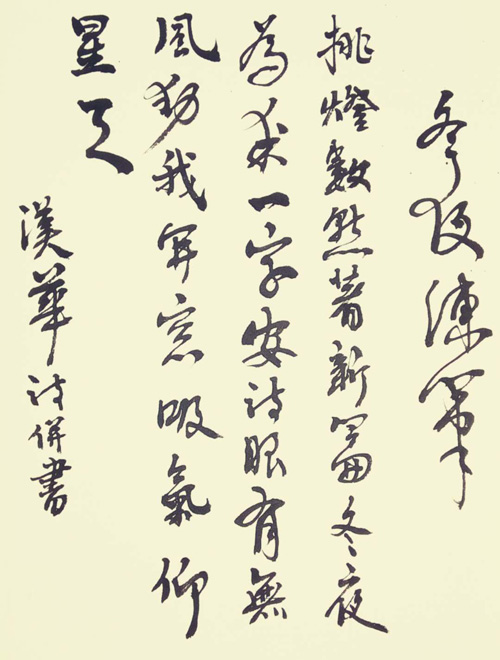 冬夜練筆
挑燈數然著新篇冬夜
為求一字安詩眼有無
風動我開窓吸氣仰
星天
漢華詩併書